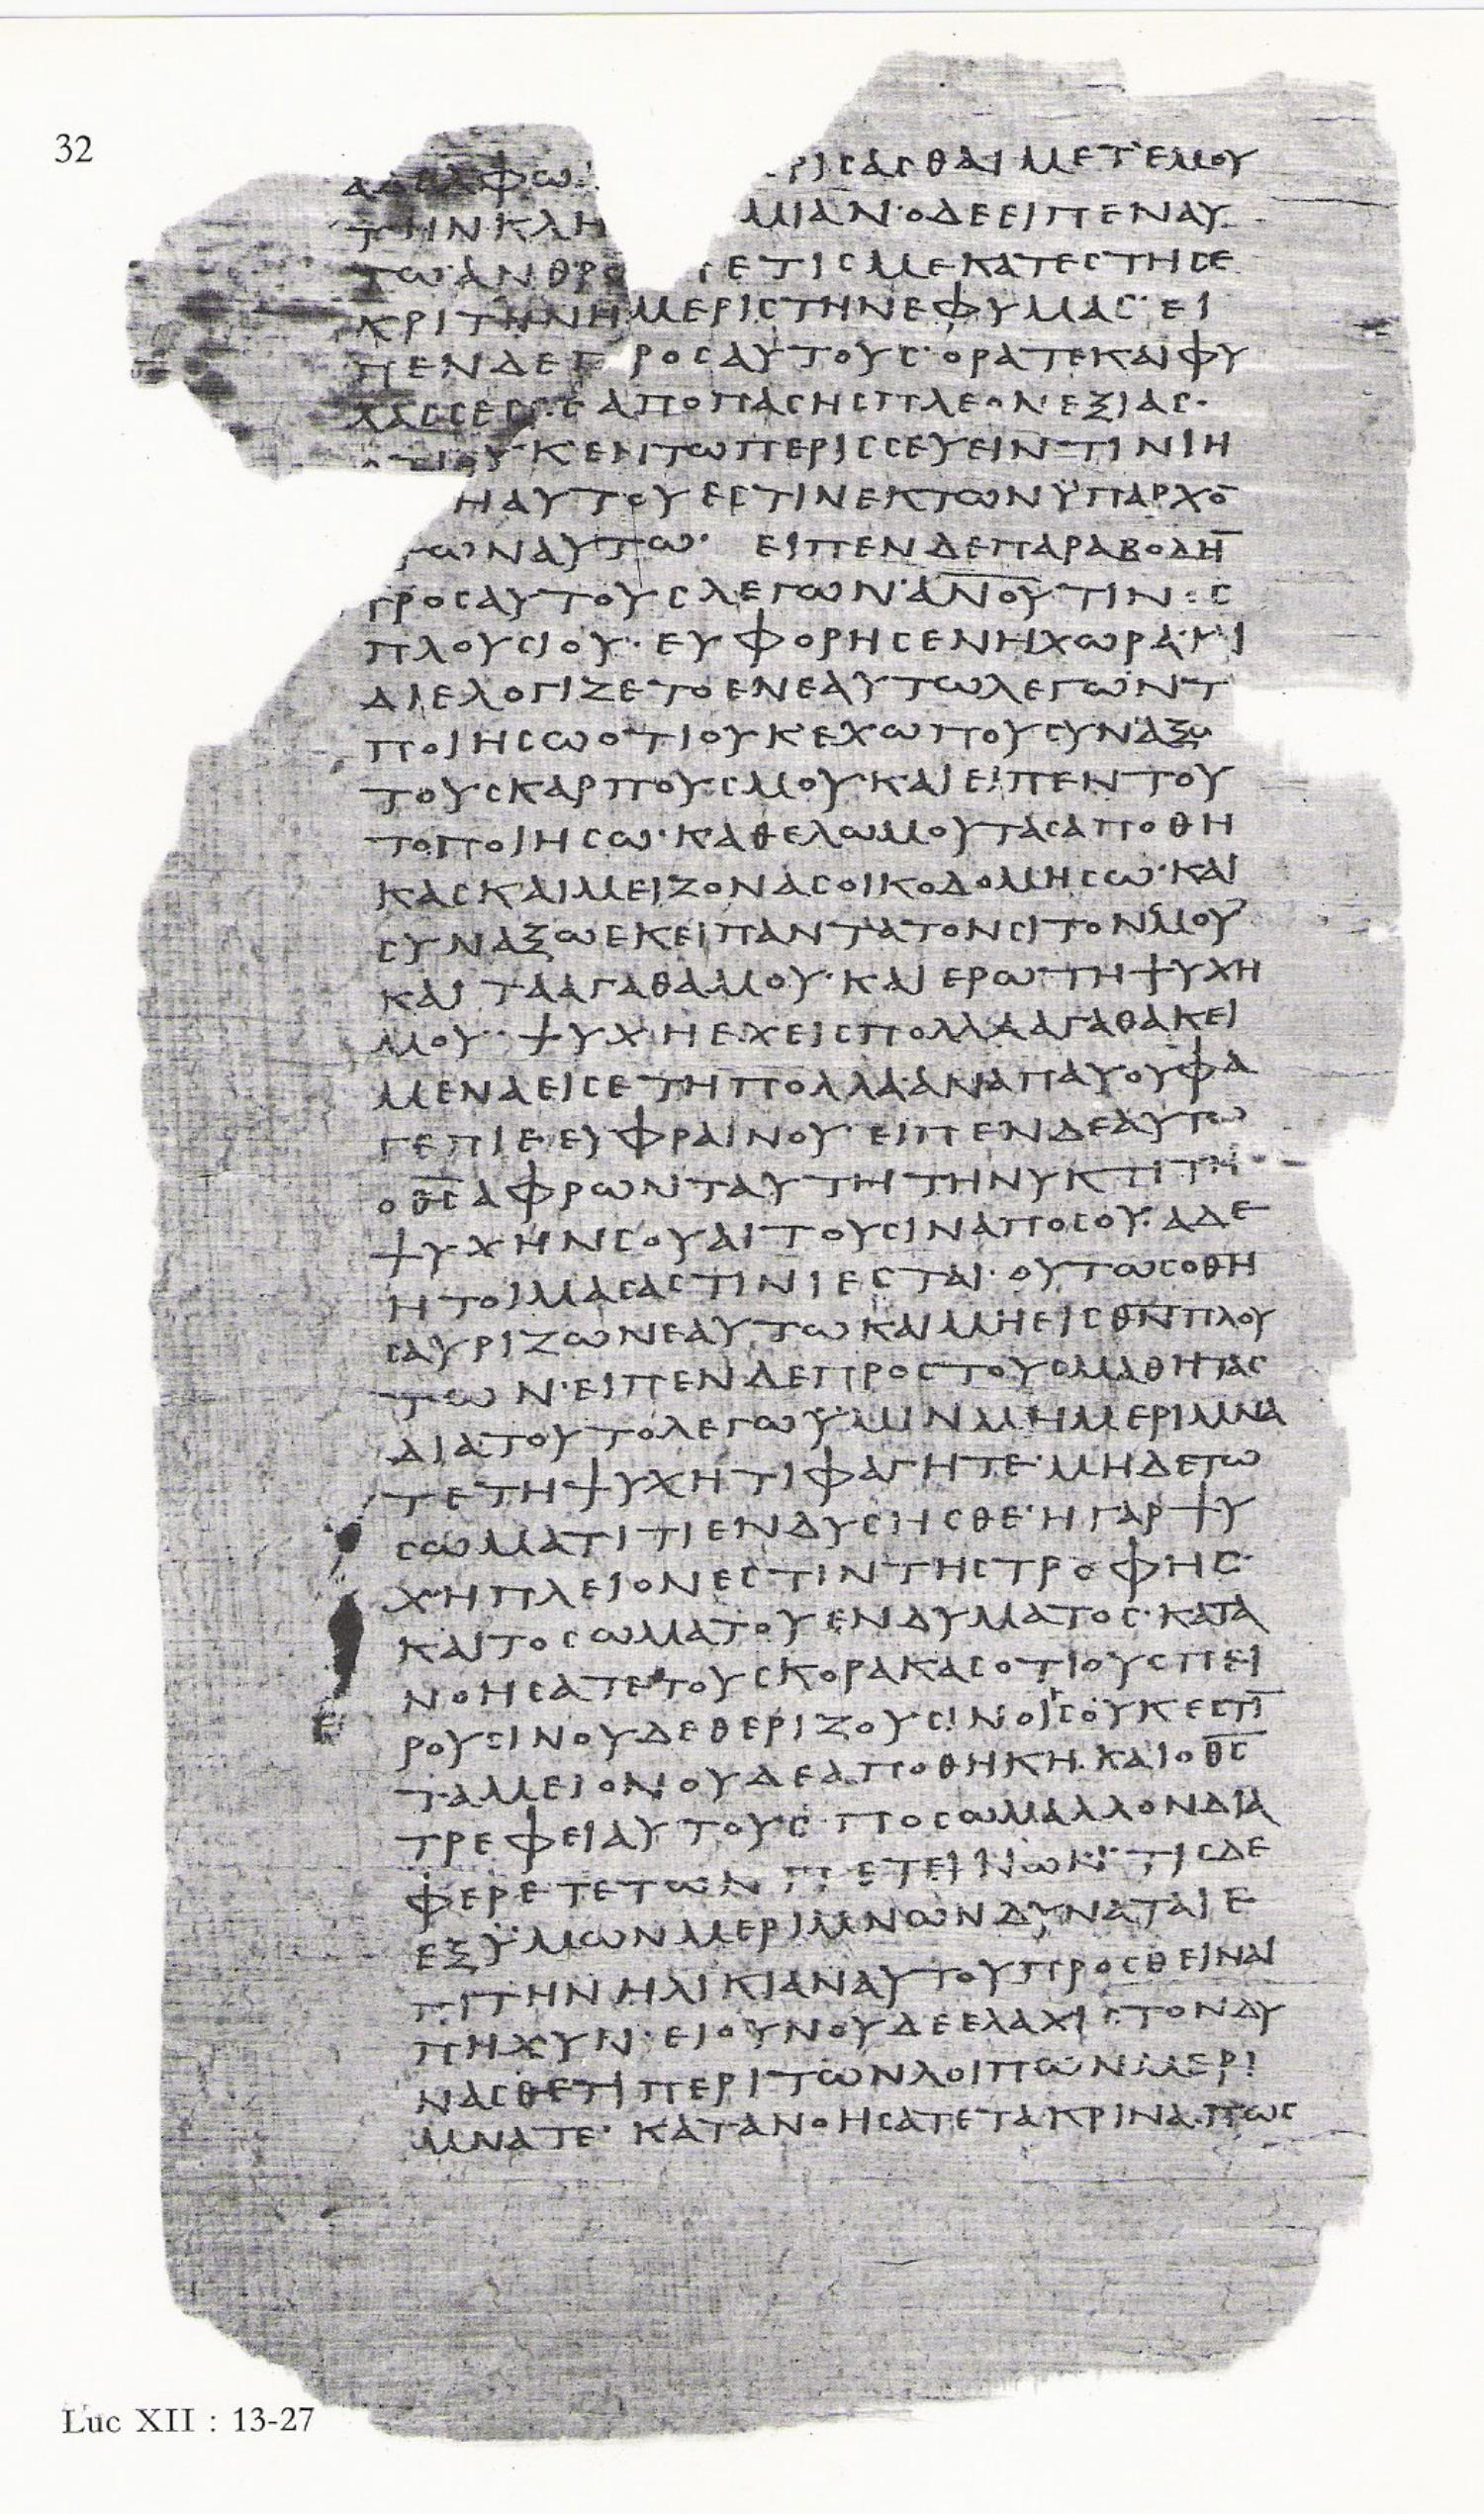 32
ΑΔΕΛΦΩ ΡΙCΑCΘΑΙΜΕΤΕΜΟΥ
ΤΗΝΚΛΗ ΜΙΑΝ·ΟΔΕΕΙΠΕΝΑΥ
ΤΩ·ΑΝΘΡΩ CΕΤΙCΜΕΚΑΤΕCΤΗCΕ
ΚΡΙΤΗΝΗΜΕΡΙCΤΗΝΕΦΥΜΑC·ΕΙ
ΠΕΝΔΕΠΡΟCΑΥΤΟΥC·ΟΡΑΤΕΚΑΙΦΥ
ΛΑCCΕCΘΕΑΠΟΠΑCΗCΠΛΕΟΝΕΞΙΑC·
ΟΤΙΟΥΚΕΝΤΩΠΕΡΙCCΕΥΕΙΝΤΙΝΙΗ
ΗΑΥΤΟΥΕCΤΙΝΕΚΤΩΝΫΠΑΡΧΟ̅
ΤΩΝΑΥΤΩ· ΕΙΠΕΝΔΕΠΑΡΑΒΟΛΗ̅
ΠΡΟCΑΥΤΟΥCΛΕΓΩΝ·Α̅Ν̅Ο̅Υ̅ΤΙΝΟC
ΠΛΟΥCΙΟΥ·ΕΥΦΟΡΗCΕΝΗΧΩΡΑ·ΚΑΙ
ΔΙΕΛΟΓΙΖΕΤΟΕΝΕΑΥΤΩΛΕΓΩΝΤ
ΠΟΙΗCΩΟΤΙΟΥΚΕΧΩΠΟΥCΥΝΑΞΩ
ΤΟΥCΚΑΡΠΟΥCΜΟΥ·ΚΑΙΕΙΠΕΝΤΟΥ
ΤΟΠΟΙΗCΩ·ΚΑΘΕΛΩΜΟΥΤΑCΑΠΟΘΗ
ΚΑCΚΑΙΜΕΙΖΟΝΑCΟΙΚΟΔΟΜΗCΩ·ΚΑΙ
CΥΝΑΞΩΕΚΕΙΠΑΝΤΑΤΟΝCΙΤΟΝΜΟΥ
ΚΑΙΤΑΑΓΑΘΑΜΟΥ·ΚΑΙΕΡΩΤΗΨΥΧΗ
ΜΟΥ·ΨΥΧΗΕΧΕΙCΠΟΛΛΑΑΓΑΘΑΚΕΙ
ΜΕΝΑΕΙCΕΤΗΠΟΛΛΑ·ΑΝΑΠΑΥΟΥΦΑ
ΓΕΠΙΕ·ΕΥΦΡΑΙΝΟΥ·ΕΙΠΕΝΔΕΑΥΤΩ
ΟΘ̅C̅ΑΦΡΩΝΤΑΥΤΗΤΗΝΥΚΤΙΤΗ
ΨΥΧΗΝCΟΥΑΙΤΟΥCΙΝΑΠΟCΟΥ·ΑΔΕ
ΗΤΟΙΜΑCΑCΤΙΝΙΕCΤΑΙ·ΟΥΤΩCΟΘΗ
CΑΥΡΙΖΩΝΕΑΥΤΩΚΑΙΜΗΕΙCΘ̅Ν̅ΠΛΟΥ
ΤΩΝ·ΕΙΠΕΝΔΕΠΡΟCΤΟΥCΜΑΘΗΤΑC
ΔΙΑΤΟΥΤΟΛΕΓΩΫΜΙΝΜΗΜΕΡΙΜΝΑ
ΤΕΤΗΨΥΧΗΤΙΦΑΓΗΤΕ·ΜΗΔΕΤΩ
CΩΜΑΤΙΤΙΕΝΔΥCΗCΘΕ·ΗΓΑΡΨΥ
ΧΗΠΛΕΙΟΝΕCΤΙΝΤΗCΤΡΟΦΗC·
ΚΑΙΤΟCΩΜΑΤΟΥΕΝΔΥΜΑΤΟC·ΚΑΤΑ
ΝΟΗCΑΤΕΤΟΥCΚΟΡΑΚΑCΟΤΙΟΥCΠΕΙ
ΡΟΥCΙΝΟΥΔΕΘΕΡΙΖΟΥCΙΝΟΙCΟΥΚΕCΤΙ̅
ΤΑΜΕΙΟΝΟΥΔΕΑΠΟΘΗΚΗ·ΚΑΙΟΘ̅C̅
ΤΡΕΦΕΙΑΥΤΟΥC·ΠΟCΩΜΑΛΛΟΝΔΙΑ
ΦΕΡΕΤΕΤΩΝΠΕΤΕΙΝΩΝ·ΤΙCΔΕ
ΕΞΫΜΩΝΜΕΡΙΜΝΩΝΔΥΝΑΤΑΙΕ
ΠΙΤΗΝΗΛΙΚΙΑΝΑΥΤΟΥΠΡΟCΘΕΙΝΑΙ
ΠΗΧΥΝ·ΕΙΟΥΝΟΥΔΕΕΛΑΧΙCΤΟΝΔΥ
ΝΑCΘΕΤΙΠΕΡΙΤΩΝΛΟΙΠΩΝΜΕΡΙ
ΜΝΑΤΕ·ΚΑΤΑΝΟΗCΑΤΕΤΑΚΡΙΝΑ·ΠΩC
Luc XII : 13-27